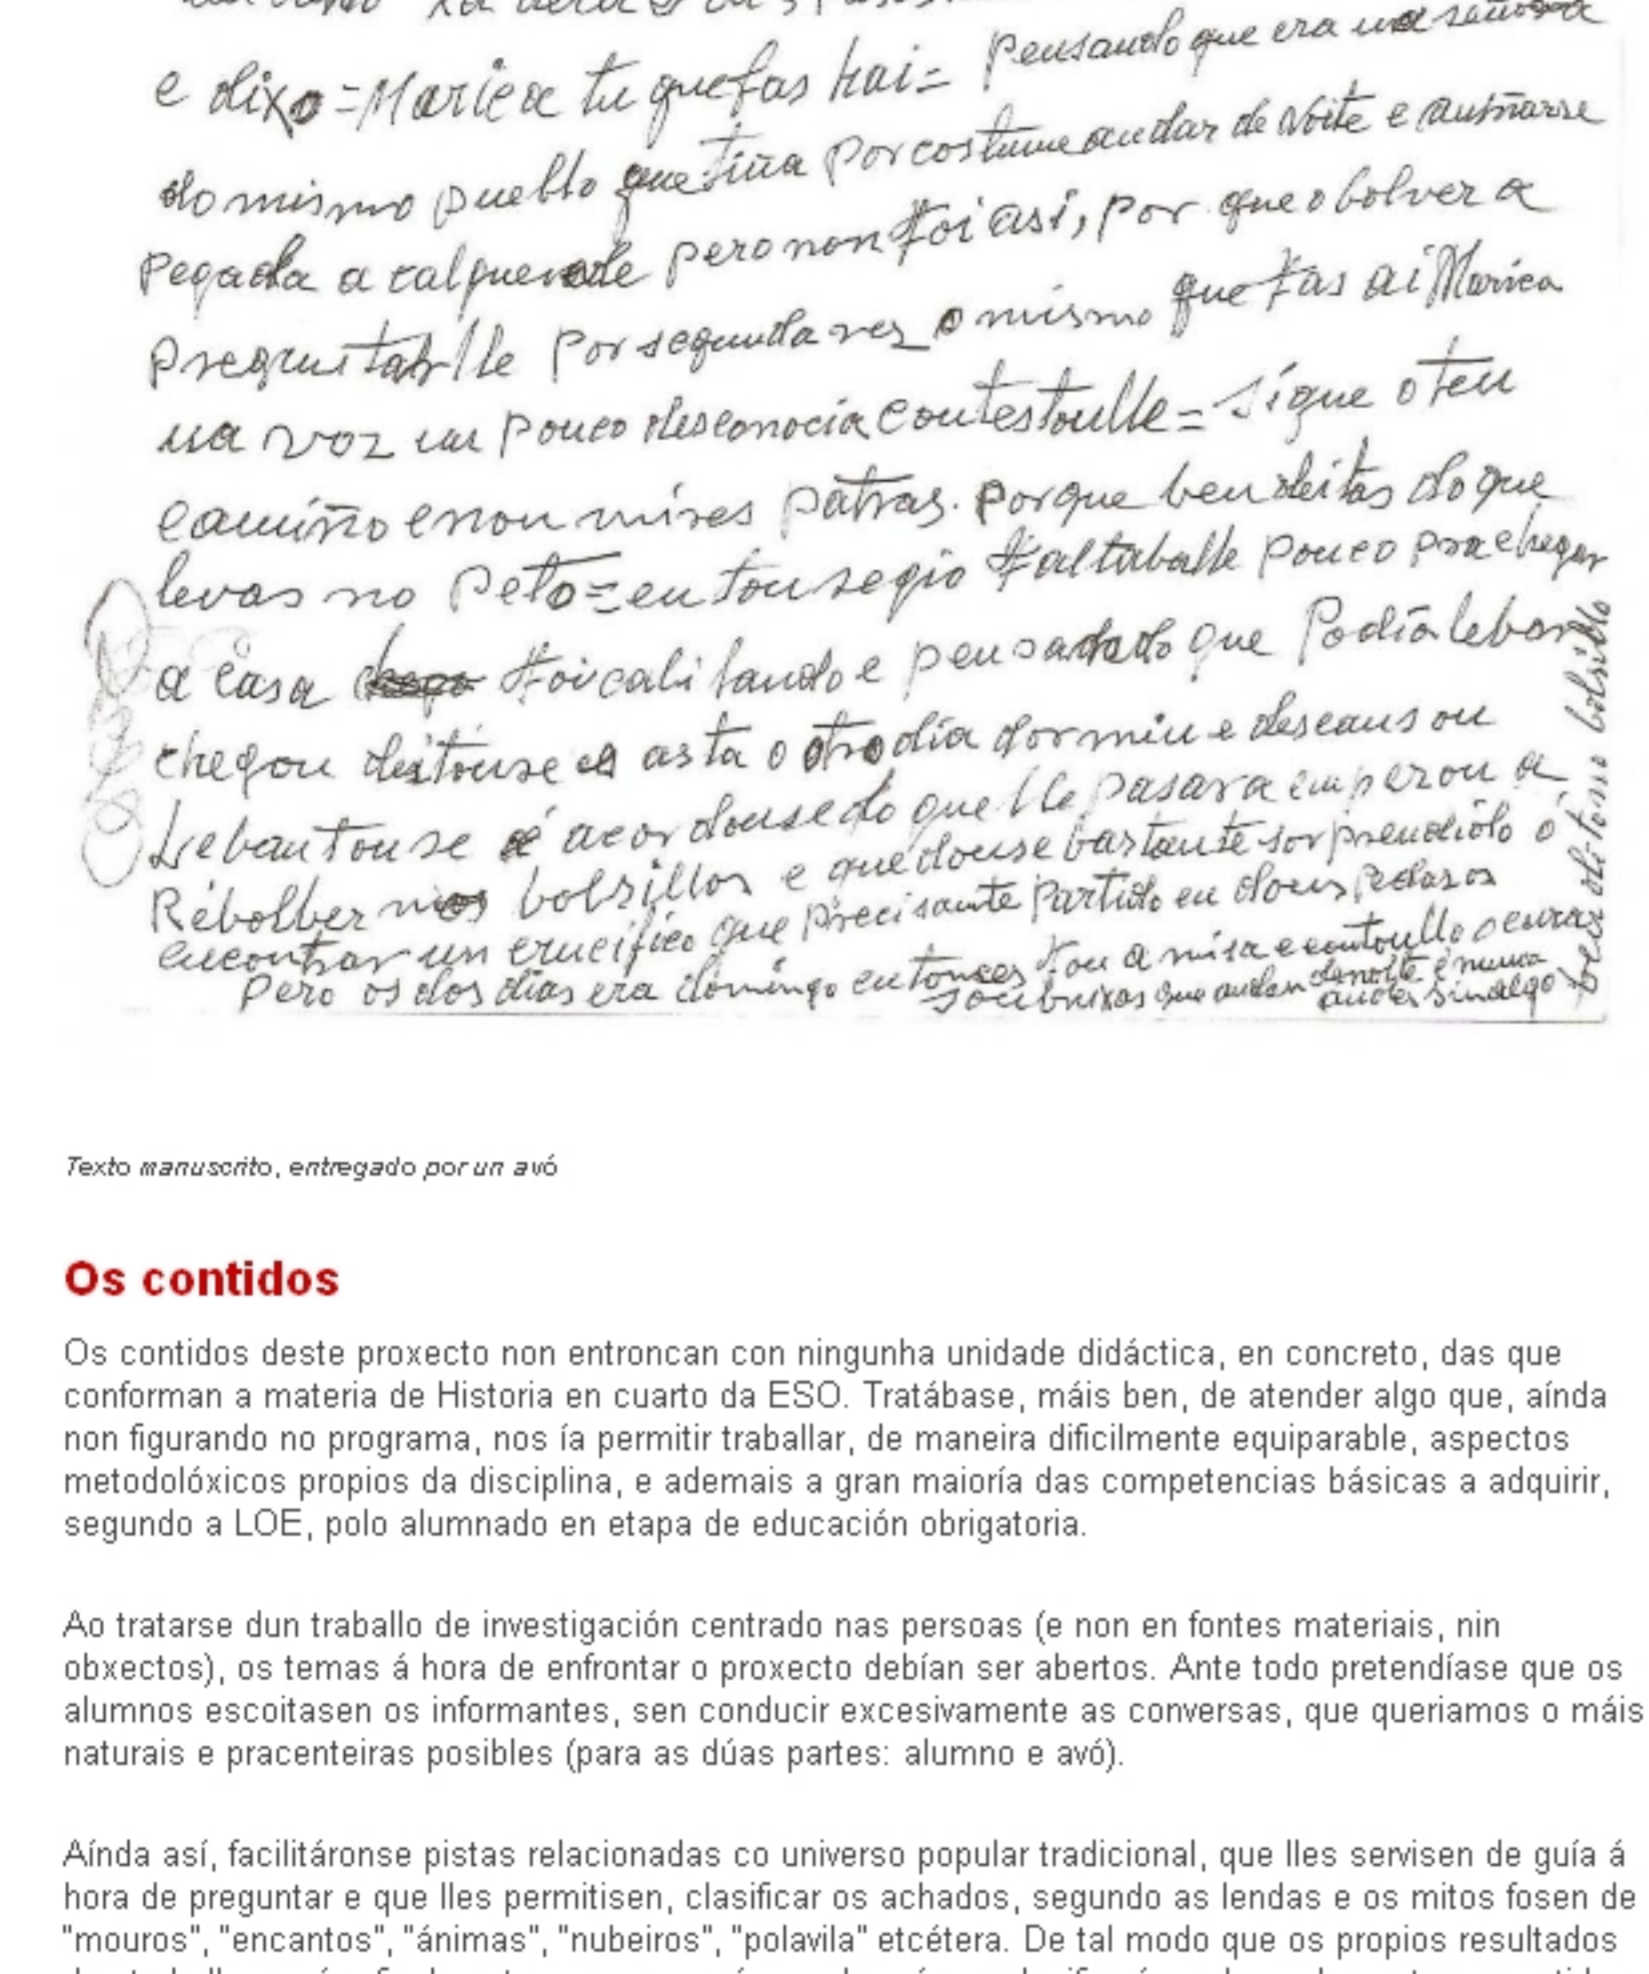 e dixo = Marica tu que fas hai = pensando que era una señora
do mismo pueblo que tiña por costume andar de Noite e
pegada a calquera pero non foi asi, por que o bolver a
preguntarlle por segunda ves o mismo que fas ai Marica
una voz un pouco desconocia contestoulle = sigue o teu
camiño e non mires patras. porque ben deitas do que
levas no peto = entou segio faltaballe pouco pra chegar
a casa foi cabilando e pensadado que Podia lebar
chegou deitouse asta o otro dia dormiu e descansou
Lebantouse e acordouse do que lle pasara emperou a
Rebolber nos bolsillos e quedouse bastante sorprendiolo o
encontrar un crucifico que precisamte partido en dous pedasos
Pero os dos dias era domingo entonces fou a misa e contoullo o cura
son bruxas que andan denoite e nunca
andes sin algo
bolsillo
Texto manuscrito, entregado por un avó
Os contidos
Os contidos deste proxecto non entroncan con ningunha unidade didáctica, en concreto, das que
conforman a materia de Historia en cuarto da ESO. Tratábase, máis ben, de atender algo que, aínda
non figurando no programa, nos ía permitir traballar, de maneira dificilmente equiparable, aspectos
metodolóxicos propios da disciplina, e ademais a gran maioría das competencias básicas a adquirir,
segundo a LOE, polo alumnado en etapa de educación obrigatoria.
Ao tratarse dun traballo de investigación centrado nas persoas (e non en fontes materiais, nin
obxectos), os temas á hora de enfrontar o proxecto debían ser abertos. Ante todo pretendíase que os
alumnos escoitasen os informantes, sen conducir excesivamente as conversas, que queriamos o máis
naturais e pracenteiras posibles (para as dúas partes: alumno e avó).
Aínda así, facilitáronse pistas relacionadas co universo popular tradicional, que lles servisen de guía á
hora de preguntar e que lles permitisen, clasificar os achados, segundo as lendas e os mitos fosen de
"mouros", "encantos", "ánimas", "nubeiros", "polavila" etcétera. De tal modo que os propios resultados